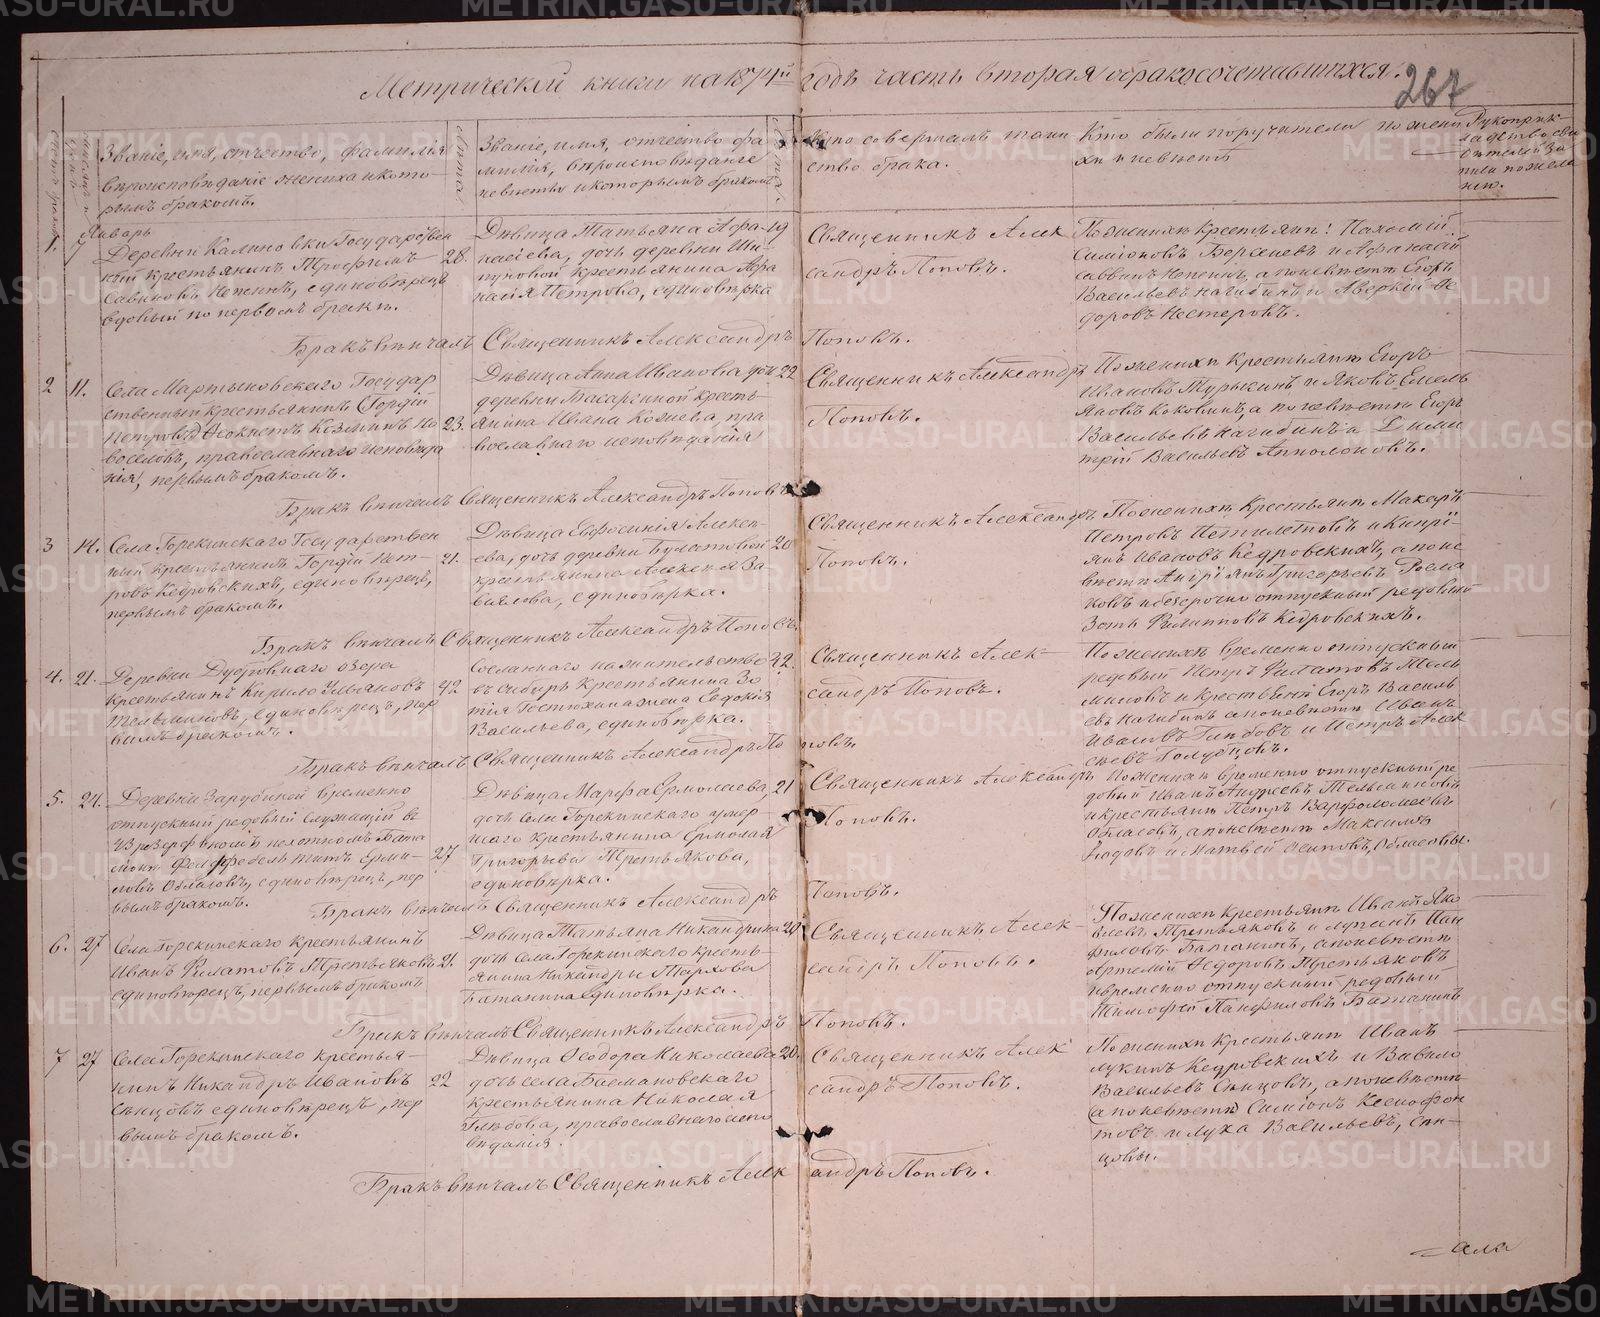 Метрической книги на 1874й годъ часть вторая о бракосочетавшихся.
267
Званіе, имя, отчество, фамилія
вѣроисповѣданіе жениха и кото-
рымъ бракомъ.
Лѣта
Званіе, имя, отчество фа-
милія, вѣроисповѣданіе
невѣсты и которымъ бракомъ
Кто совершалъ таин
ство брака.
Кто были поручители по жени
хи и невѣстѣ
Рукоприк-
ладство сви
дѣтелей за
писи по жела
нію.
Январь
1. 7
Деревни Калиновки Государствен
ный крестьянинъ Трофимъ
Савиновъ единовѣрецъ
вдовый по первомъ браки.
28.
Дѣвица Татьяна Афа-
насіева, дочь деревни
крестьянина Афа
насія Петрова, единовѣрка
19
Священникъ Алек
сандръ Поповъ.
По женихѣ крестьяни: Пахомій
Симіоновъ и Афанасій
Саввинъ а по невѣстѣ Егоръ
Васильевъ Нагибинъ и Аверкій Ѳе
доровъ Нестеровъ.
Бракъ вѣнчалъ Священникъ Александръ Поповъ.
2 11.
Села Мартыновскаго Государ
ственный крестьянинъ (Гордій
Петровъ) Козминъ Но
воселовъ, православнаго исповѣда
нія, первымъ бракомъ.
23.
Дѣвица Анна Иванова доч
деревни Басаргиной кресть-
янина Ивана пра
вославнаго исповѣданія
22
Священникъ Александръ
Поповъ.
По женихѣ крестьяни Егоръ
Ивановъ и Яковъ Емель
яновъ а по невѣстѣ Егоръ
Васильевъ Нагибинъ а Дими
трій Васильевъ Апполоновъ.
Бракъ вѣнчалъ Священникъ Александръ Поповъ
3 14.
Села Горскинскаго Государствен
ный крестьянинъ Гордій Пет-
ровъ Кедровскихъ, единовѣрецъ,
первымъ бракомъ.
21.
Дѣвица Евфросинія Алексе-
ева, дочь деревни
крестьянина Алексея За
вьялова, единовѣрка.
20
Священникъ Александръ
Поповъ.
По женихѣ крестьяни Макаръ
Петровъ и Кипрі-
янъ Ивановъ Кедровскихъ, а по не
вѣсте Андріянъ Григорьевъ
и безсрочно отпускный редовый
Филипповъ Кедровскихъ.
Бракъ вѣнчалъ Священникъ Александръ Поповъ.
4. 21.
Деревни Дубровнаго озера
крестьянинъ Кирило Ульяновъ
Тельминовъ, единовѣрецъ, пер
вымъ бракомъ.
42
Сосланнаго на жительство
въ Сибирь крестьянина
жена Евдокія
Васильева, единовѣрка.
32.
Священникъ Алек-
сандръ Поповъ.
По женихѣ временно отпускный
редовый Петръ Филатовъ Тель
миновъ и крестьяни Егоръ Василь
евъ Нагибинъ а по невѣсти Иванъ
Ивановъ Глѣбовъ и Петръ Алек
сѣевъ Голубцовъ.
Бракъ вѣнчалъ Священникъ Александръ Поповъ.
5. 24.
Деревни Зарубиной временно
отпускный редовый служащій въ
резервномъ пехотномъ Бата
ліонѣ Титъ
Обласовъ, единовѣрецъ, пер
вымъ бракомъ.
27
Дѣвица Марфа Ермолаева,
дочь села Горскинскаго умер-
шаго крестьянина Ермолая
Григорьева Третьякова,
единовѣрка.
21
Священникъ Александръ
Поповъ.
По женихѣ временно отпускный ре
довый Иванъ Андреевъ Тельминовъ
и крестьяни Петръ Варфоломеевъ
Обласовъ, а по невѣсти Максимъ
и Матвей Осиповъ, Обласовы.
Бракъ вѣнчалъ Священникъ Александръ Поповъ.
6. 27
Села Горскинскаго крестьянинъ
Иванъ Филатовъ Третьяковъ
единовѣрецъ, первымъ бракомъ
21.
Дѣвица Татьяна Никандрина
дочь села Горскинскаго кресть-
янина Никандры
Баталина единовѣрка.
20
Священникъ Алек-
сандръ Поповъ.
По женихѣ крестьяни Иванъ Яко
влевъ Третьяковъ и Лупанъ Пан
филовъ а по невѣсти
Артемій Ѳедоровъ Третьяковъ
и временно отпускный редовый
Тимофей Панфиловъ
Бракъ вѣнчалъ Священникъ Александръ Поповъ.
7 27
Села Горскинскаго крестья-
нинъ Никандръ Ивановъ
Сѣнцовъ единовѣрецъ, пер
вымъ бракомъ.
22
Дѣвица Ѳеодора Николаева
дочь села Басмановскаго
крестьянина Николая
Глѣбова, православнаго испо
вѣданія.
20.
Священникъ Алек
сандръ Поповъ.
По женихѣ крестьяни Иванъ
Лукинъ Кедровскихъ и Вавило
Васильевъ Сѣнцовъ, а по невѣсти
(а по невѣсти) Симіонъ Ксенофон
товъ и Лука Васильевъ, Сѣн-
цовы.
Бракъ вѣнчалъ Священникъ Александръ Поповъ.
METRIKI.GASO-URAL.RU